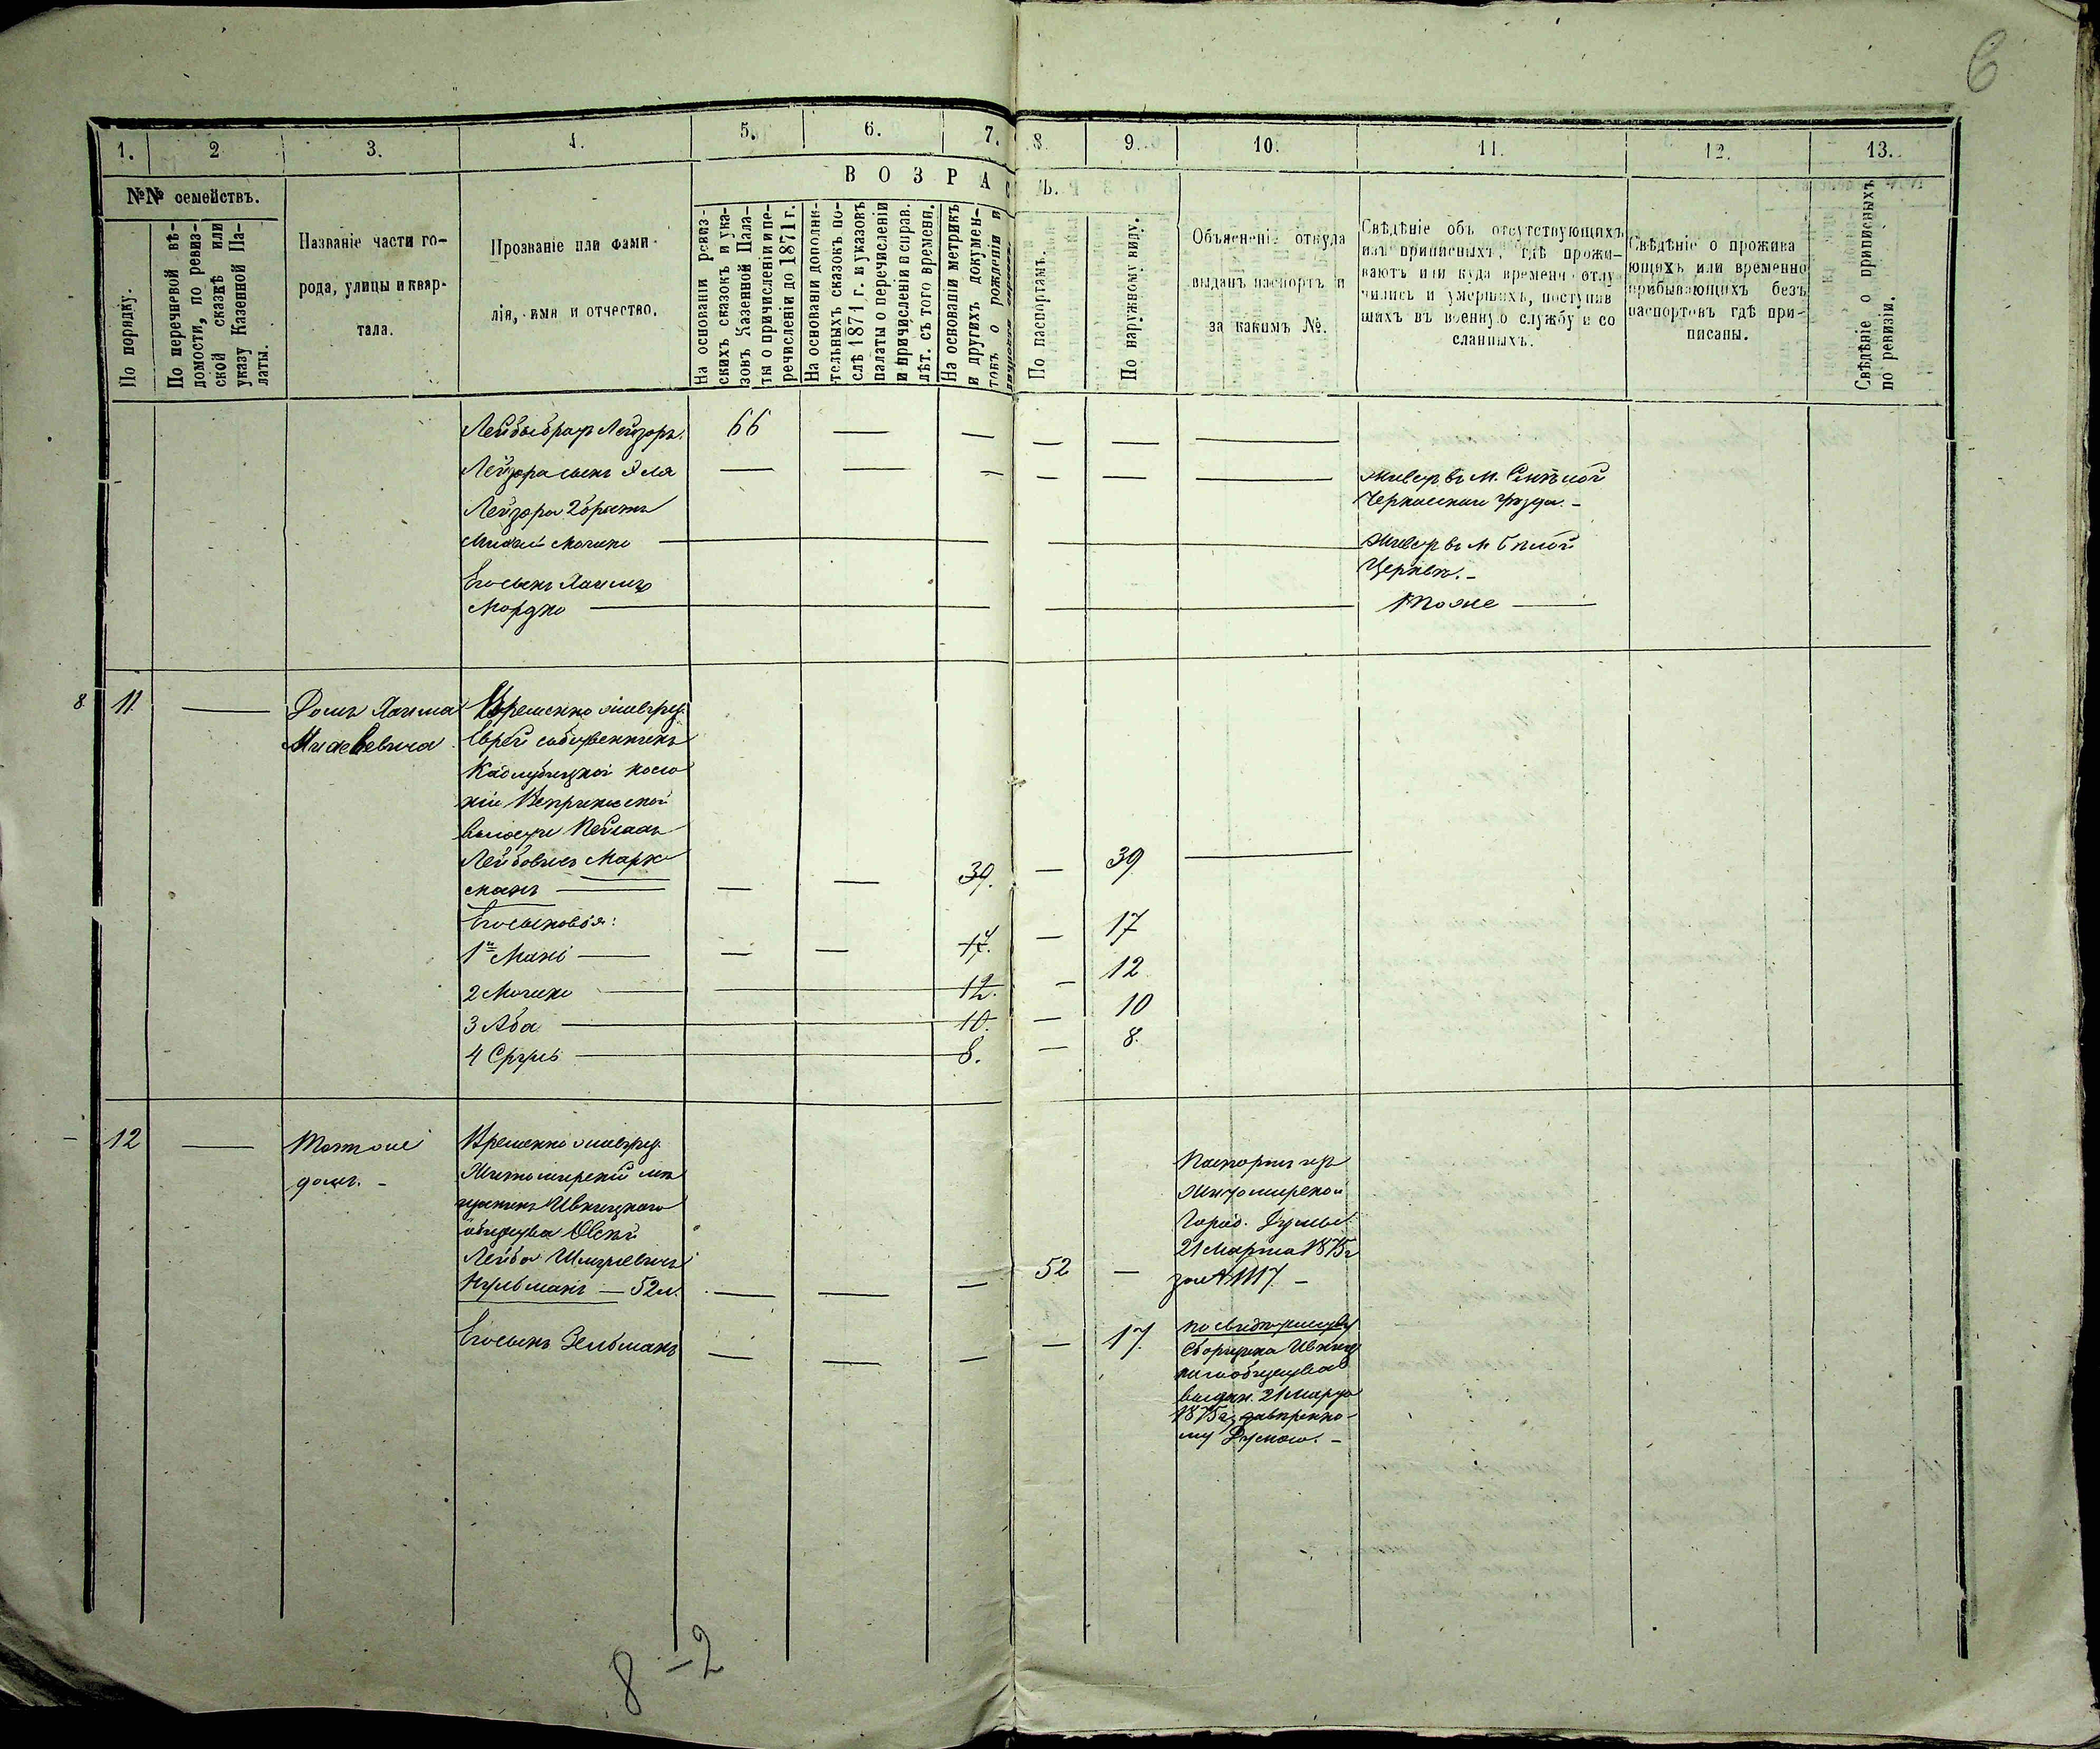 6
1. 2 3. 4. 5. 6. 7. 8. 9. 10. 11. 12. 13.
№№ семействъ.
В О З Р А С Т Ъ.
По порядку.
По перечневой вѣ-
домости, по ревиз-
ской сказкѣ или
указу Казенной Па-
латы.
Названіе части го-
рода, улицы и квар-
тала.
Прозваніе или фами-
лія, имя и отчество.
На основаніи ревиз-
скихъ сказокъ и ука-
зовъ Казенной Пала-
ты о причисленіи и пе-
речисленіи до 1871 г.
На основаніи дополни-
тельныхъ сказокъ по-
слѣ 1871 г. и указовъ
палаты о перечисленіи
и причисленіи и справ.
лѣт. съ того времени.
На основаніи метрикъ
и другихъ докумен-
товъ о рожденіи и
По паспортамъ.
По наружному виду.
Объясненіе откуда
выданъ паспортъ и
за какимъ №.
Свѣдѣніе объ отсутствующихъ
изъ приписныхъ, гдѣ прожи-
ваютъ или куда временно отлу
чились и умершихъ, поступив
шихъ въ военную службу и со
сланныхъ.
Свѣдѣніе о прожива
ющихъ или временно
прибывающихъ безъ
паспортовъ гдѣ при-
писаны.
Свѣдѣніе о приписныхъ
по ревизіи.
Лейбы братъ Лейзоръ. 66 — — — — —
Лейзора сынъ Эля — — — — — — живетъ въ м. Смѣлой
Лейзора 2 братъ Черкасскаго уѣзда. -
Мошко — живетъ въ м. Бѣлой
Его сынъ Хаимъ Церкви. -
Мордко — тоже —
8. 11. — Домъ Хаима Временно живущ.
Еврей собственникъ
коло
ніи
волости
Лейбовичъ Марк
манъ — — — 39. — 39 —
Его сыновья:
1й — — — 17. — 17
2 Мошко — 12. — 12
3 Аба — 10. — 10
4 Сруль — 8. — 8.
12 — Тотъ же Временно живущ.
домъ. - Житомирскій мѣ
щанинъ Ивницкаго
общества
Лейба Шмулевичъ
— 52 л. — — — 52 —
Паспортъ изъ
Житомирской
Город. Думы
21 Марта 1875 г
за № 1117. -
Его сынъ Зельманъ — — — — 17.
по свидѣтельству
сборщика Ивниц
каго общества
выдан. 21 Марта
1875 г, завѣренно-
му Думою. -
8 - 2